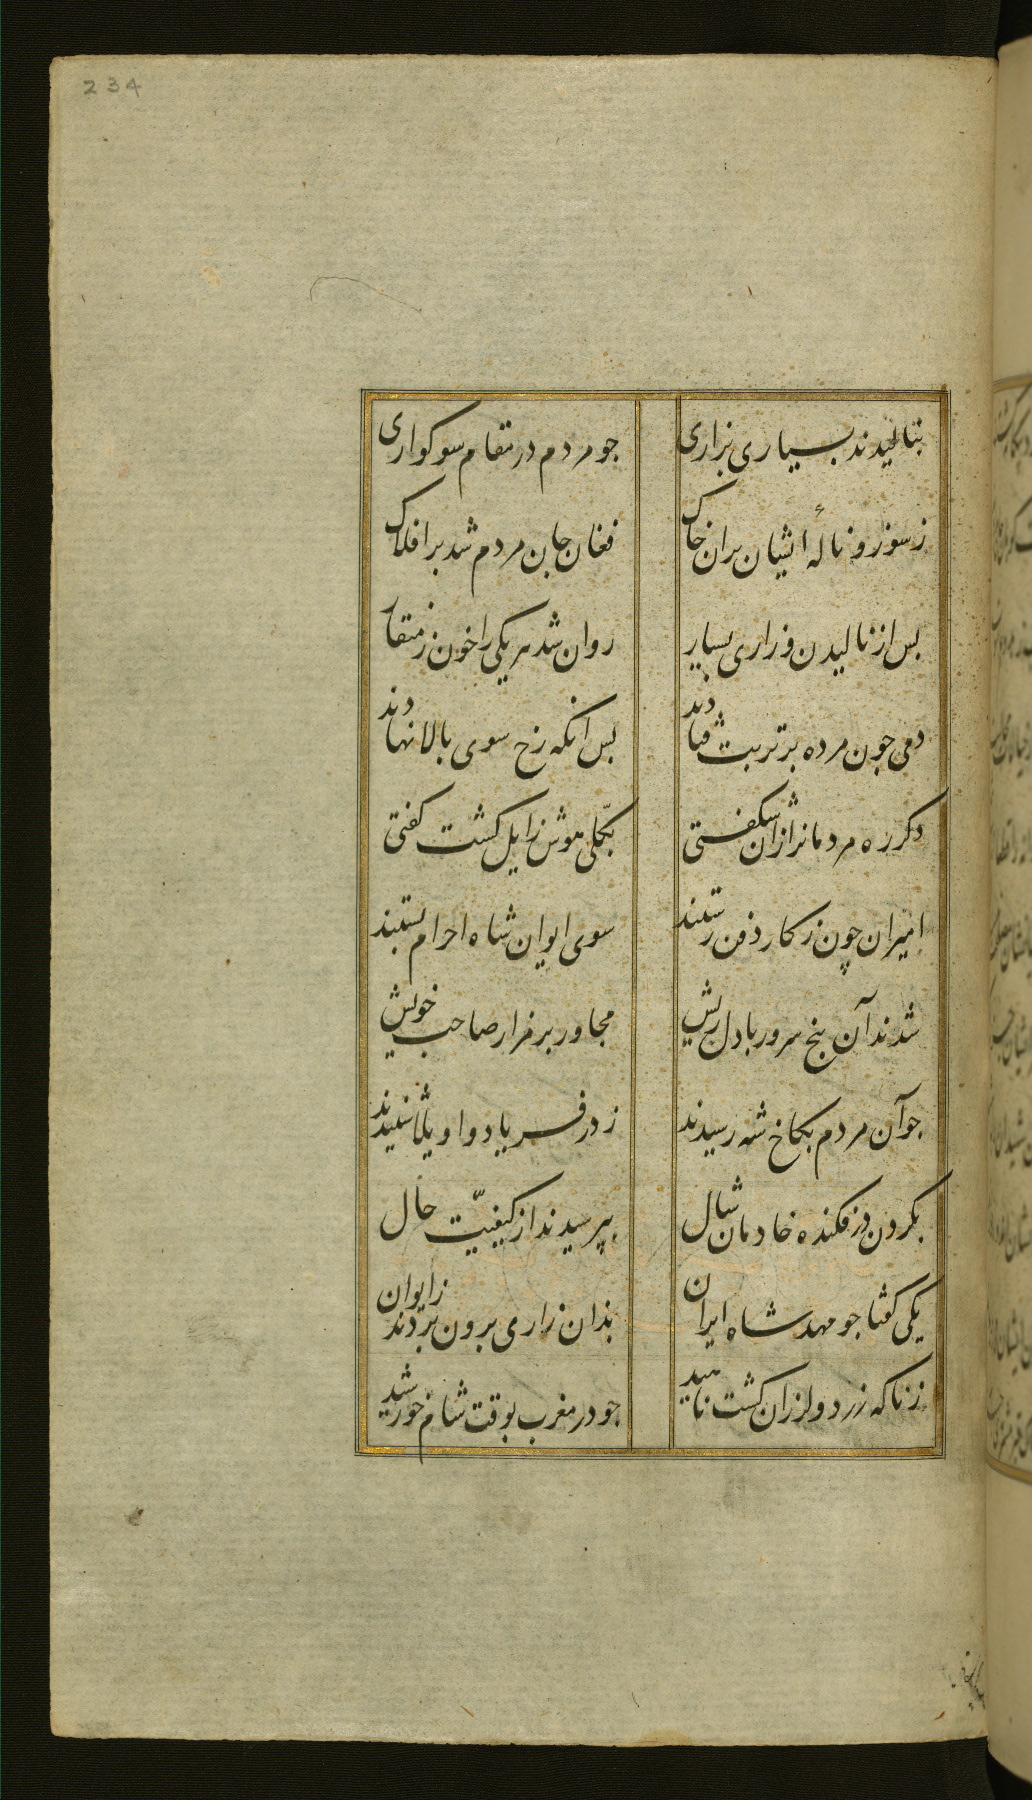 234
بنالیدند بسیاری بزاری
جو مردم در مقام سوکواری
ز سوز و نالهٔ ایشان بران خاک
فغان جان مردم شد بر افلاک
بس از نالیدن و زاری بسیار
روان شد هر یکی را خون ز منقار
دمی جون مرده بر تربت فتادند
بس انکه رخ سوی بالا نهادند
دکر ره مردمانرا زان شکفتی
بکلی هوش زایل کشت کفتی
امیران چون ز کار دفن رستند
سوی ایوان شاه احرام بستند
شدند آن بنج سرور با دل ریش
مجاور بر مزار صاحب خویش
جو آن مردم بکاخ شه رسیدند
ز در فریاد و اویلا شنیدند
بکردن در فکنده خادمان شال
بپرسیدند از کیفیّت حال
یکی کفتا جو مهد شاه ایران
بذان زاری برون بردند ز ایوان
ز ناکه زرد و لرزان کشت ناهید
جو در مغرب بوقت شام خورشید